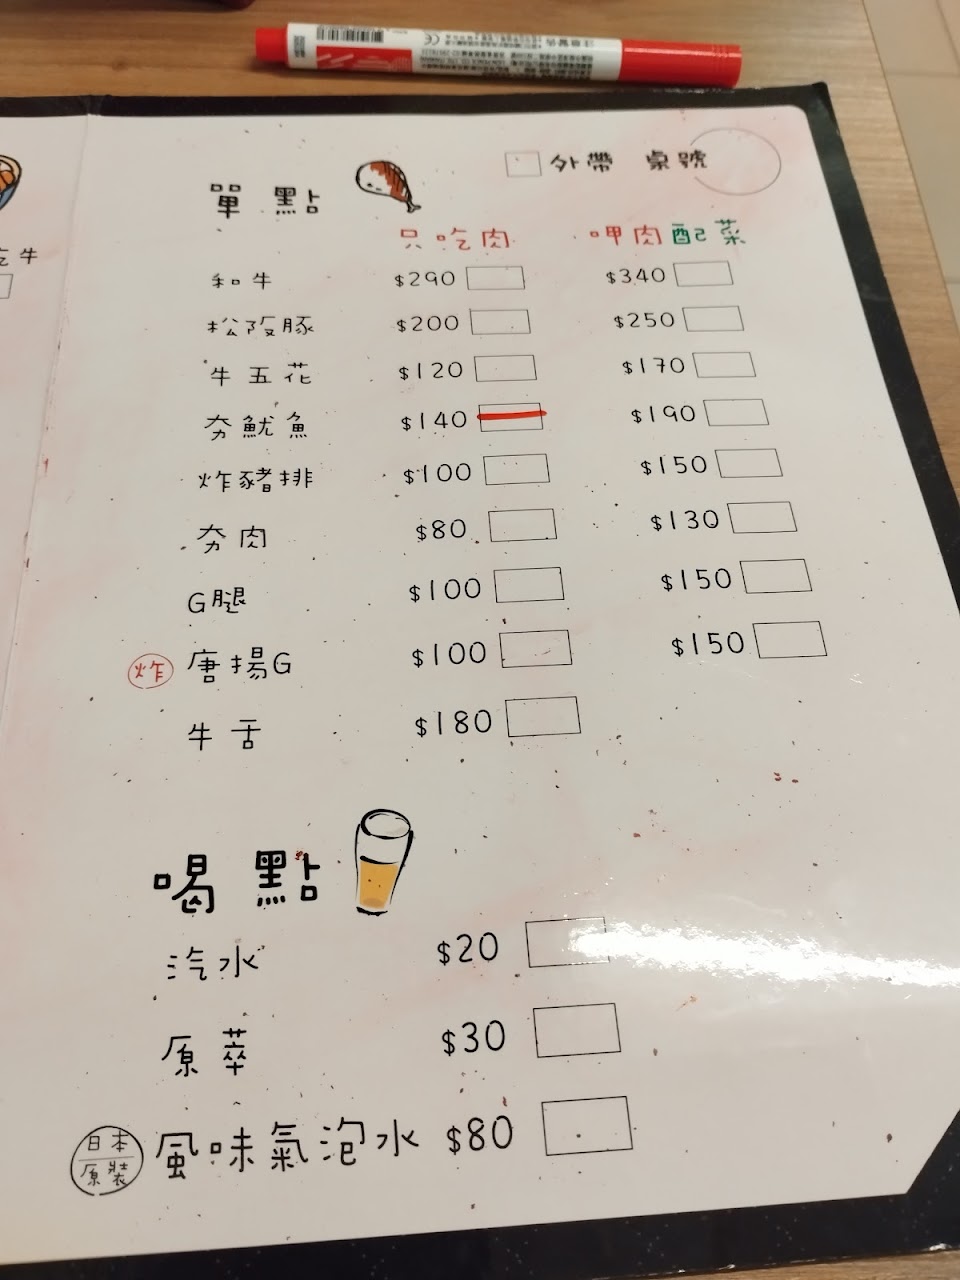 外帶 桌號
單點
只吃肉 呷肉配菜
吃牛
和牛 $290 $340
松阪豚 $200 $250
牛五花 $120 $170
夯魷魚 $140 $190
炸豬排 $100 $150
夯肉 $80 $130
G腿 $100 $150
炸 唐揚G $100 $150
牛舌 $180
喝點
汽水 $20
原萃 $30
日本原裝 風味氣泡水 $80